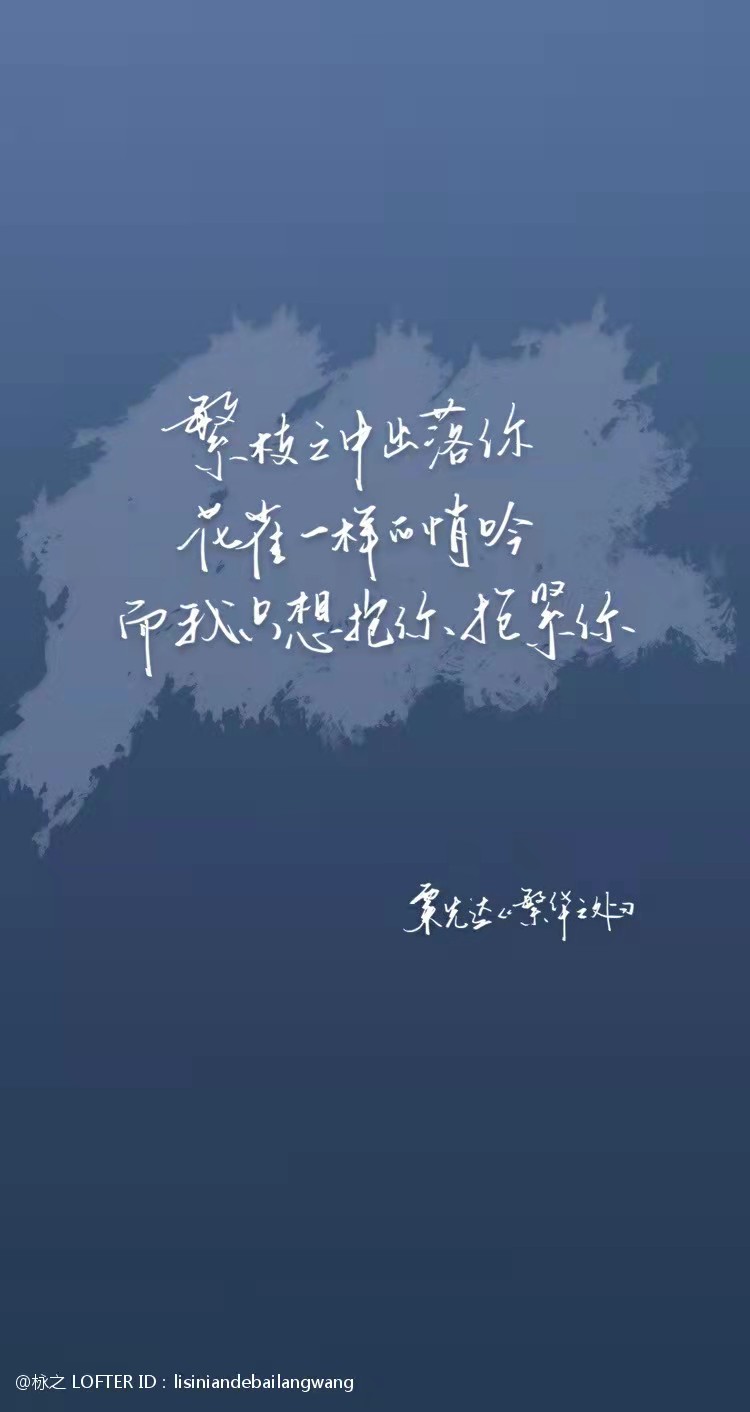 繁枝之中出落你
花雀一样的悄吟
而我只想抱你、抱紧你
粟先达《繁华之处》
@栐之 LOFTER ID：lisiniandebailangwang